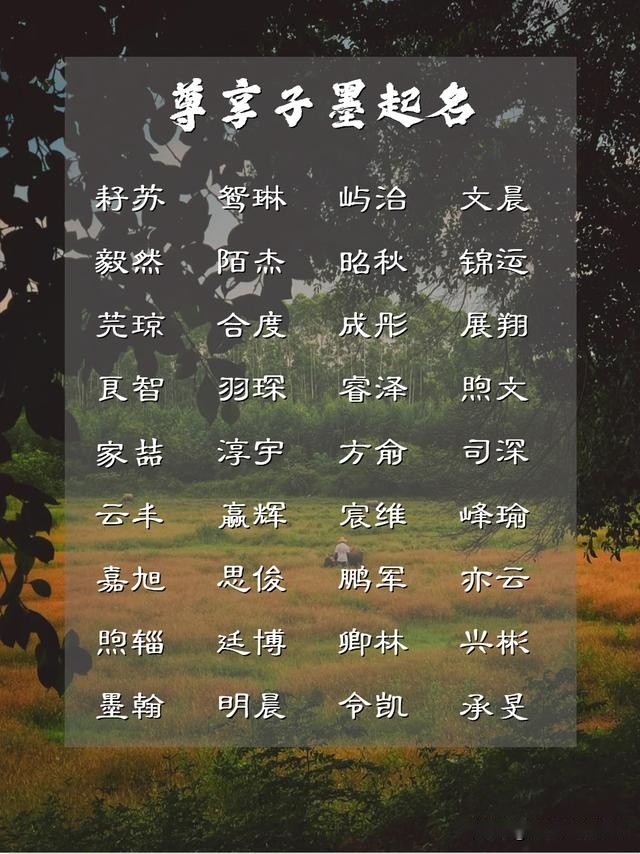 尊享子墨起名
耔苏 鸳琳 屿治 文晨
毅然 陌杰 昭秋 锦运
芫琼 合度 成彤 展翔
艮智 羽琛 睿泽 煦文
家喆 淳宇 方俞 司深
云丰 赢辉 宸维 峰瑜
嘉旭 思俊 鹏军 亦云
煦辎 廷博 卿林 兴彬
墨翰 明晨 令凯 承旻